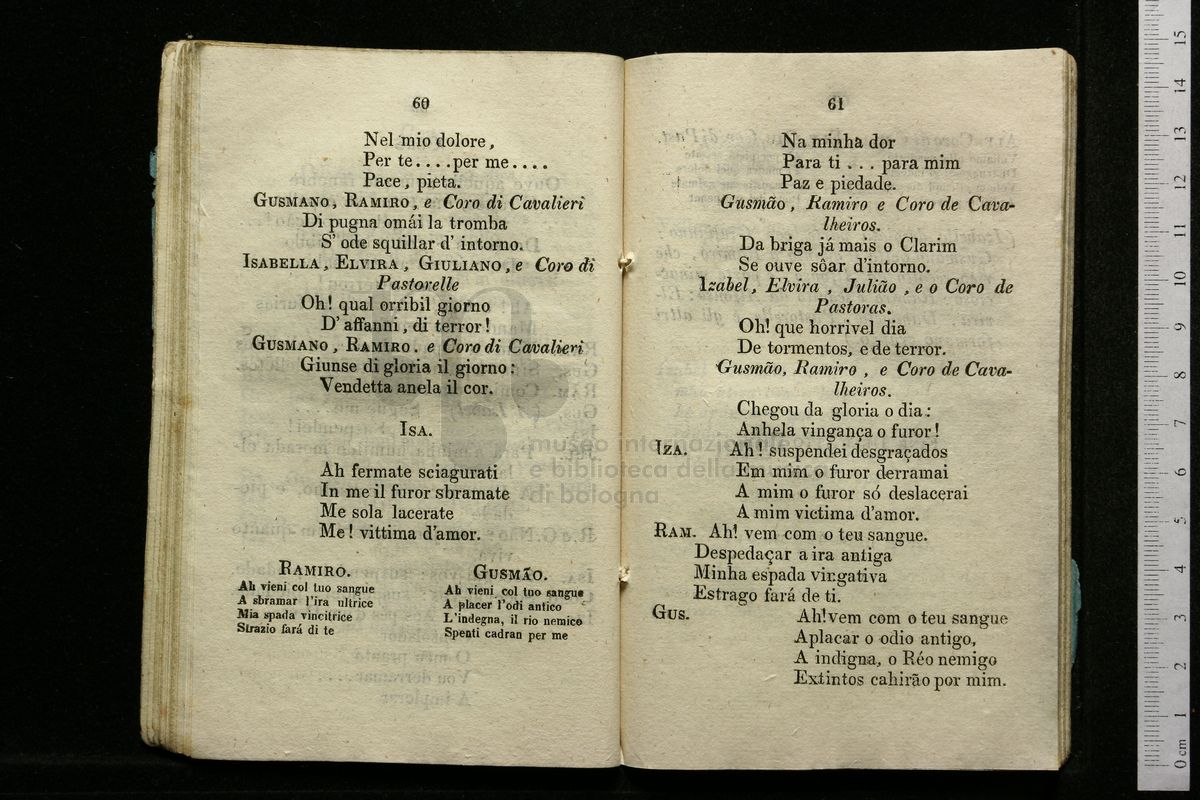 60
Nel mio dolore,
Per te....per me....
Pace, pieta.
GUSMANO, RAMIRO, e Coro di Cavalieri
Di pugna omái la tromba
S' ode squillar d' intorno.
ISABELLA, ELVIRA, GIULIANO, e Coro di
Pastorelle
Oh! qual orribil giorno
D' affanni, di terror!
GUSMANO, RAMIRO. e Coro di Cavalieri
Giunse di gloria il giorno:
Vendetta anela il cor.
ISA.
Ah fermate sciagurati
In me il furor sbramate
Me sola lacerate
Me! vittima d'amor.
RAMIRO.
Ah vieni col tuo sangue
A sbramar l'ira ultrice
Mia spada vincitrice
Strazio fará di te
GUSMÃO.
Ah vieni col tuo sangue
A placer l'odi antico
L'indegna, il rio nemico
Spenti cadran per me
61
Na minha dor
Para ti . . . para mim
Paz e piedade.
Gusmão, Ramiro e Coro de Cava-
lheiros.
Da briga já mais o Clarim
Se ouve sôar d'intorno.
Izabel, Elvira, Julião, e o Coro de
Pastoras.
Oh! que horrivel dia
De tormentos, e de terror.
Gusmão, Ramiro, e Coro de Cava-
lheiros.
Chegou da gloria o dia:
Anhela vingança o furor!
IZA. Ah! suspendei desgraçados
Em mim o furor derramai
A mim o furor só deslacerai
A mim victima d'amor.
RAM. Ah! vem com o teu sangue.
Despedaçar a ira antiga
Minha espada vingativa
Estrago fará de ti.
GUS. Ah! vem com o teu sangue
Aplacar o odio antigo,
A indigna, o Réo nemigo
Extintos cahirão por mim.
museo internazionale
e biblioteca della
di bologna
0 cm 1 2 3 4 5 6 7 8 9 10 11 12 13 14 15